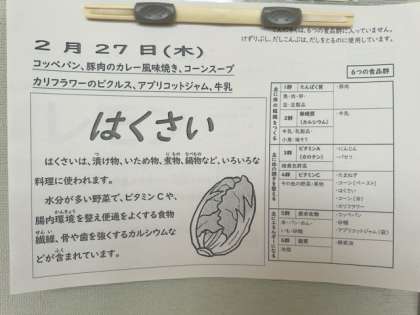 は、6つの食品群に入っていません。
けずりぶし、だしこんぶは、だしをとるのに使用しています。
2月27日(木)
コッペパン、豚肉のカレー風味焼き、コーンスープ
カリフラワーのピクルス、アプリコットジャム、牛乳
6つの食品群
はくさい
はくさいは、漬け物、いため物、煮物、鍋物など、いろいろな
料理に使われます。
水分が多い野菜で、ビタミンCや、
腸内環境を整え便通をよくする食物
繊維、骨や歯を強くするカルシウムな
どが含まれています。
1群 たんぱく質
魚・肉・卵・
豆・豆製品
・豚肉
2群 無機質
(カルシウム)
牛乳・乳製品・
小魚・海そう
・牛乳
3群 ビタミンA
(カロテン)
緑黄色野菜
・にんじん
・パセリ
4群 ビタミンC
その他の野菜・果物
・たまねぎ
・コーン(ペースト)
・はくさい
・コーン(冷)
・カリフラワー
5群 炭水化物
米・パン・めん・
いも・砂糖
・コッペパン
・砂糖
・アプリコットジャム(袋)
6群 脂質
油脂